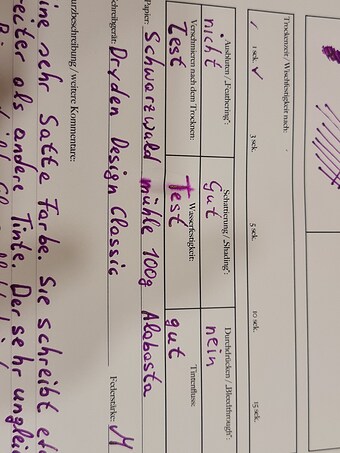 Trockenzeit / Wischfestigkeit nach:
1 sek. ✓ 3 sek. 5 sek. 10 sek. 15 sek.
Ausbluten / „Feathering“: Schattierung / „Shading“: Durchdrücken / „Bleedthrough“:
nicht Gut nein
Verschmieren nach dem Trocknen: Wasserfestigkeit: Tintenfluss:
Test Test gut
Papier: Schwarzwald mühle 100g Alabasta
chreibgerät: Dryden Design Classic Federstärke: M
urzbeschreibung / weitere Kommentare:
ine sehr Satte Farbe. Sie schreibt et
eiter als andere Tinte. Der sehr unglei